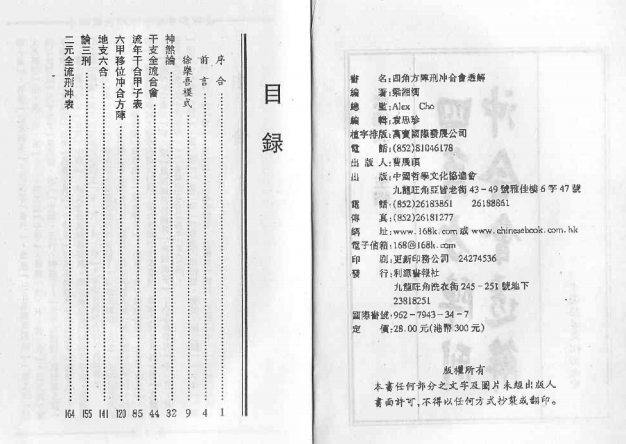 目録
序合……1
前言……4
徐樂吾模式……9
神煞論……32
干支金流合會……44
流年干合甲子表……85
六甲移位冲合方陣……120
地支六合……141
論三刑……155
二元全流刑冲表……164
書　名:四角方陣刑冲合會透解
編　著:梁湘潤
總　監:Alex Cho
編　輯:袁思珍
植字排版:萬寶國際發展公司
電　話:(852)81046178
出 版 人:曹展碩
出　版:中國哲學文化協進會
九龍旺角亞皆老街43-49號雅佳樓6字47號
電　話:(852)26183861　26188861
傳　真:(852)26181277
網　址:www.168k.com或www.chinesebook.com.hk
電子信箱:168@168k.com
印　刷:更新印務公司 24274536
發　行:利源書報社
九龍旺角洗衣街245-251號地下
23818251
國際書號:962-7943-34-7
定　價:28.00元(港幣300元)
版權所有
本書任何部分之文字及圖片未經出版人
書面許可,不得以任何方式抄襲或翻印。